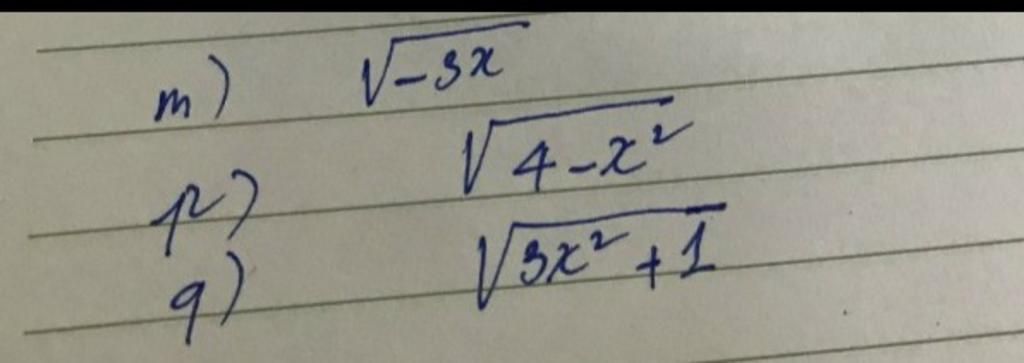 m) √-3x
p) √4-x²
q) √3x²+1